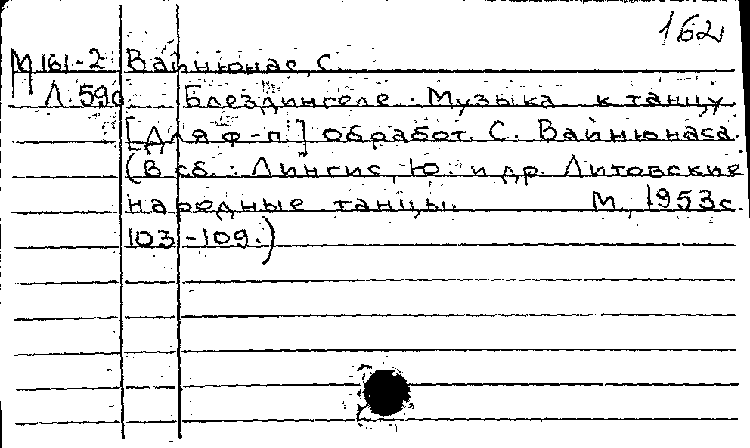 162
М 161-2 Вайнюнас, С.
Л. 590 Блездингеле. Музыка к танцу
[Для ф-п.] обработ. С. Вайнюнаса.
(В сб.: Лингис, Ю. и др. Литовские
народные танцы. М., 1953 с.
103-109.)